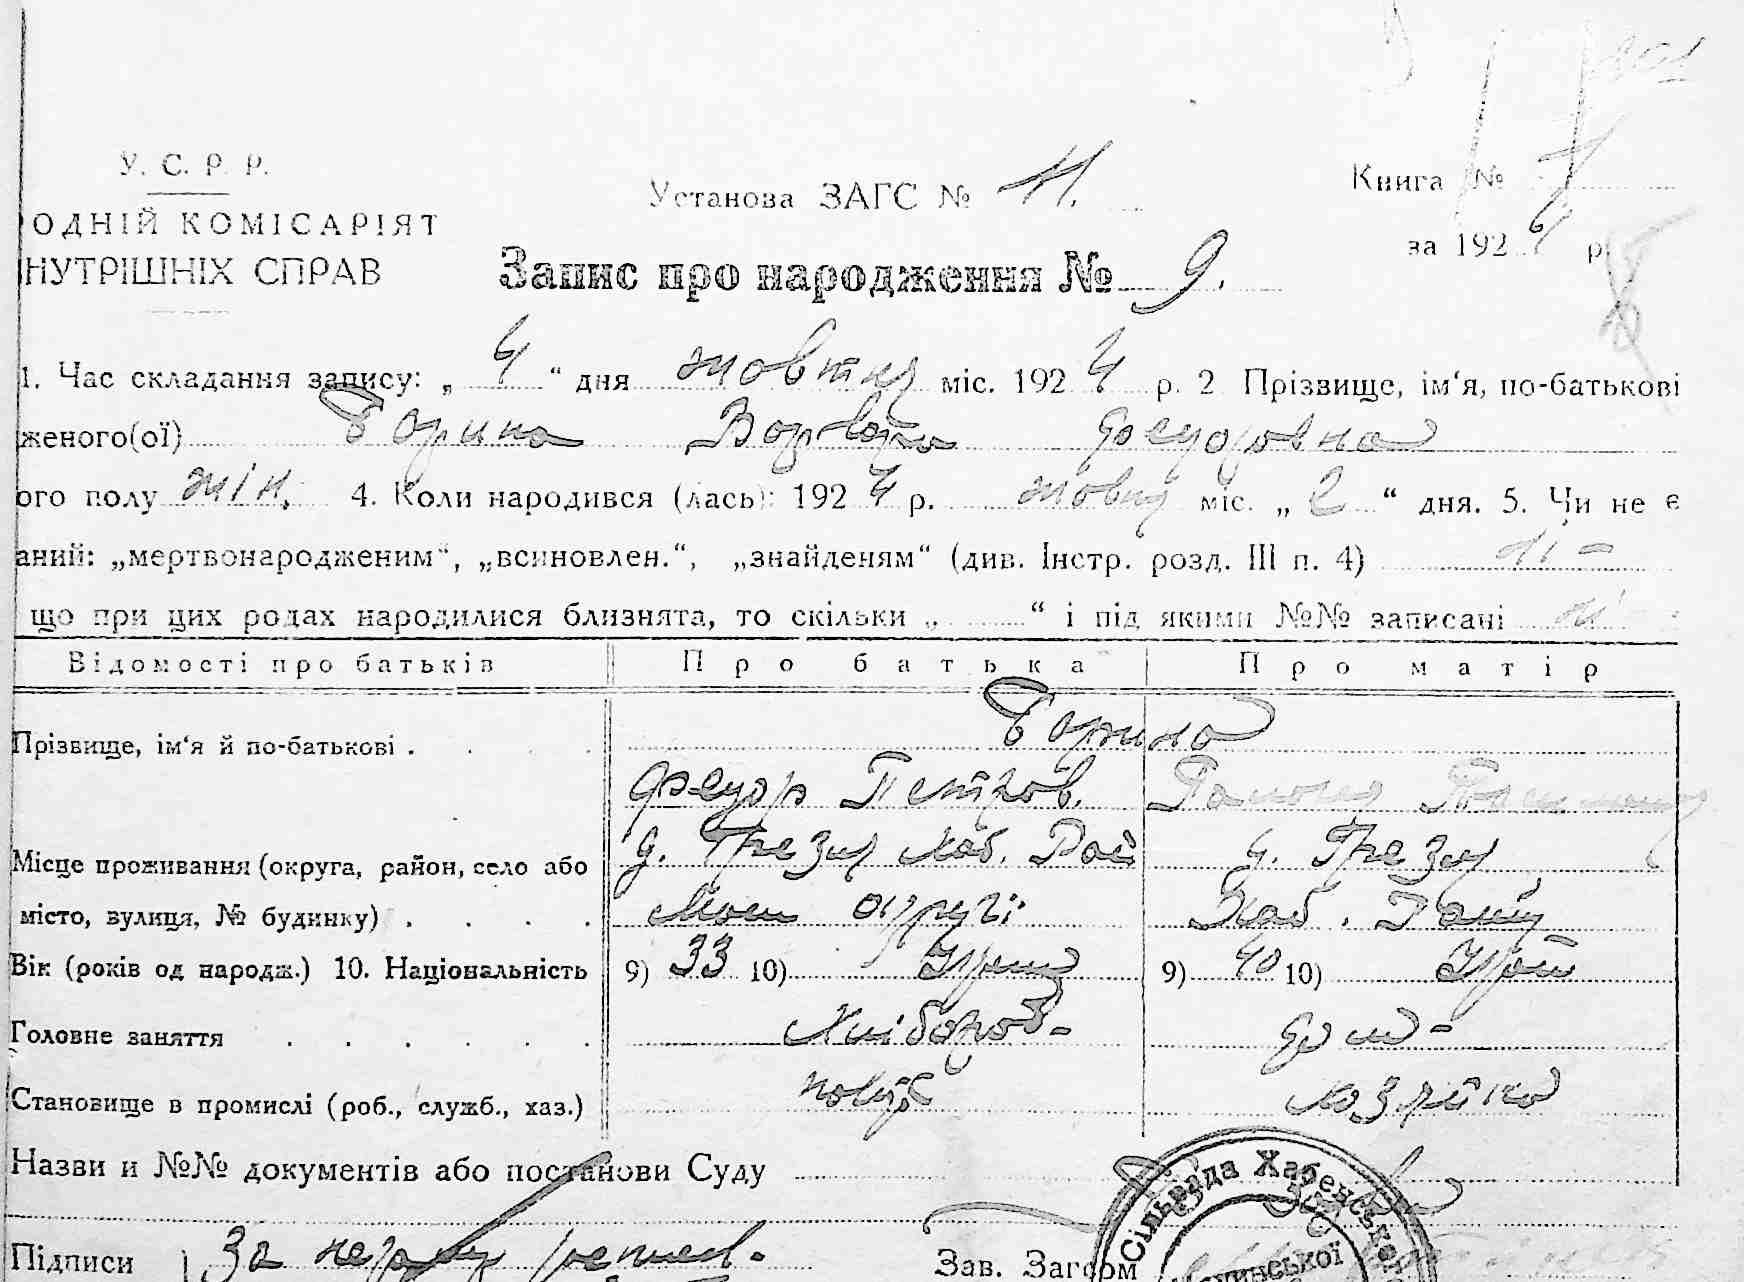 У. С. Р. Р.
ОДНІЙ КОМІСАРІЯТ
НУТРІШНІХ СПРАВ
Установа ЗАГС № 11.
Книга №
за 1924 р.
Запис про народження № 9.
1. Час складання запису: „ 4 “ дня жовтня міс. 1924 р. 2 Прізвище, ім‘я, по-батькові
женого(ої) Борина Варвара Федоровна
ого полу жін. 4. Коли народився (лась): 1924 р. жовтня міс. „ 2 “ дня. 5. Чи не є
аний: „мертвонародженим“, „всиновлен.“, „знайденям“ (див. Інстр. розд. III п. 4) ні -
що при цих родах народилися близнята, то скільки „ “ і під якими №№ записані ні
Відомості про батьків Про батька Про матір
Прізвище, ім‘я й по-батькові . . . . Борина
Федор Петров.
Місце проживання (округа, район, село або с. Грезля Хаб. Рай с. Грезля
місто, вулиця, № будинку) . . . . округі Хаб. Району
Вік (років од народж.) 10. Національність 9) 33 10) Укр 9) 40 10) Укр
Головне заняття . . . . . . Хлібороб- дом-
Становище в промислі (роб., служб., хаз.) хозяйка
Назви и №№ документів або постанови Суду
Підписи За неграм
Зав. Загсом
Сільрада Хабенського